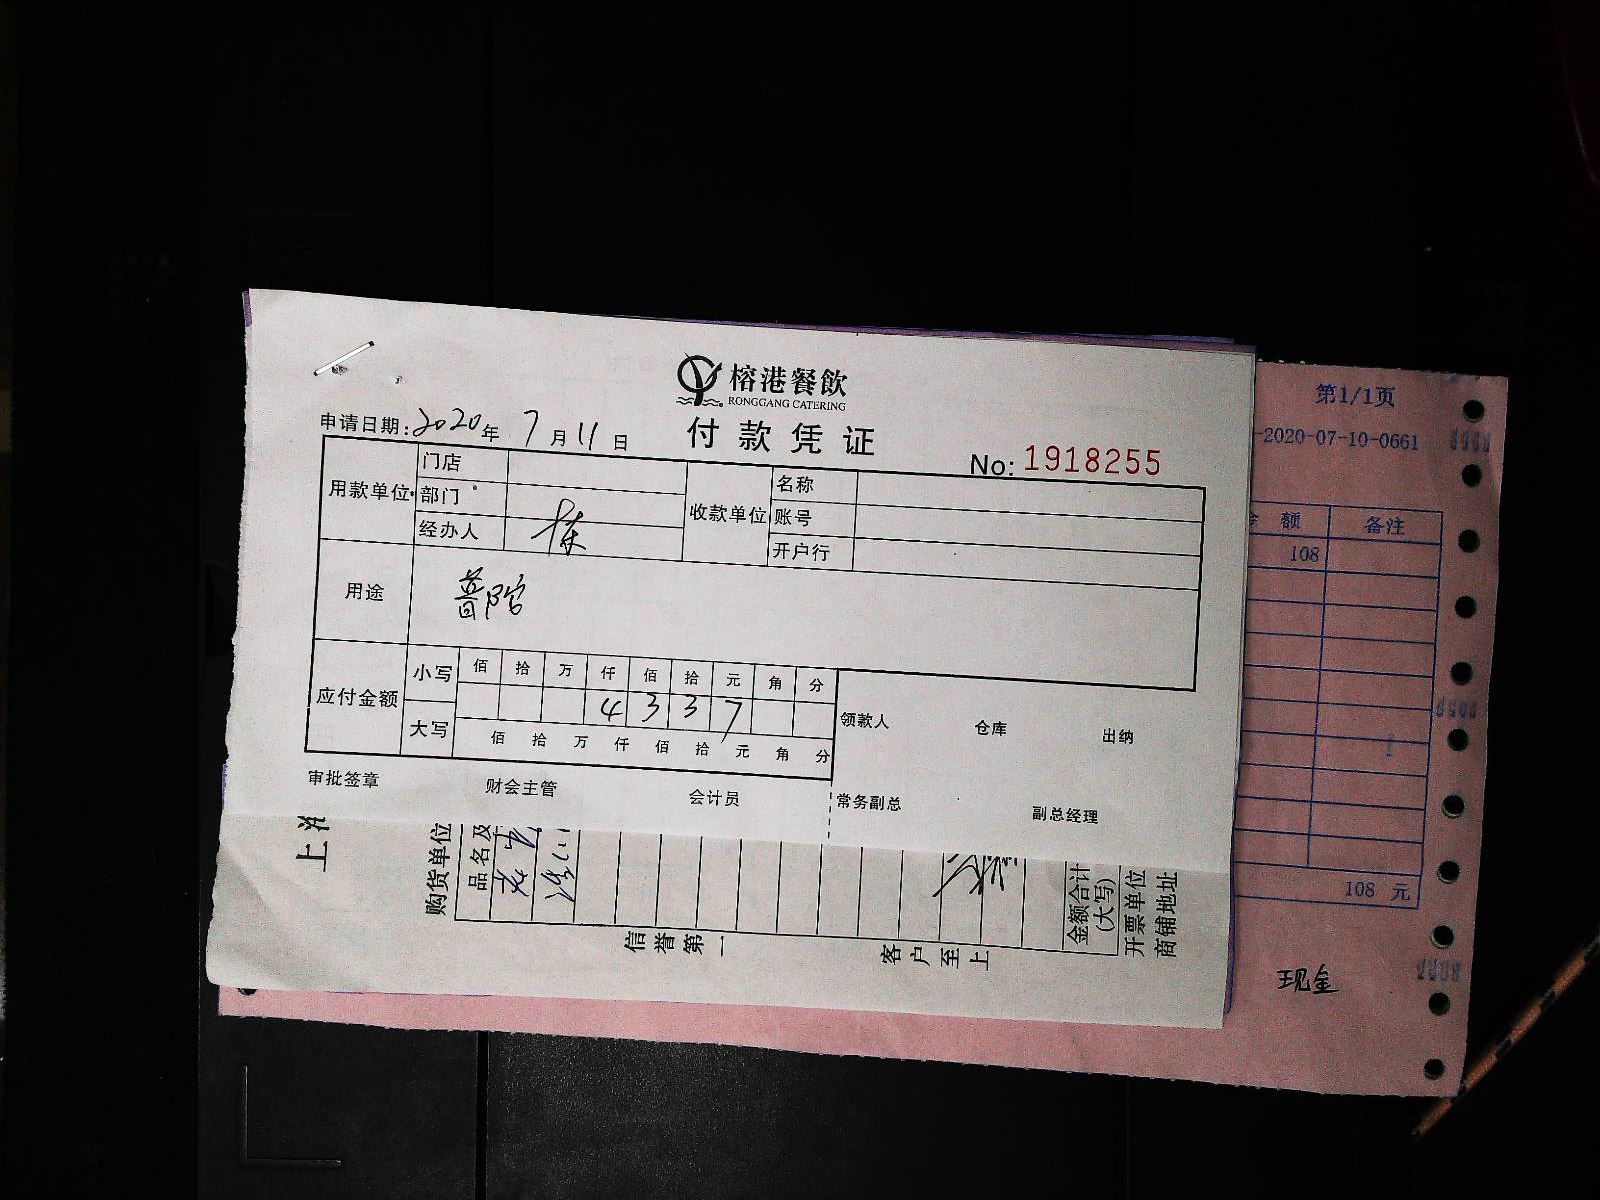 榕港餐飲
RONGGANG CATERING
付款凭证
申请日期:2020年 7月11日
No: 1918255
用款单位 门店
部门
经办人
收款单位 名称
账号
开户行
用途 普陀
应付金额 小写 佰 拾 万 仟 佰 拾 元 角 分
4 3 3 7
大写 佰 拾 万 仟 佰 拾 元 角 分
领款人 仓库 出纳
审批签章 财会主管 会计员 常务副总 副总经理
上
购货单位
品名及
信誉第一
客户至上
金额合计
(大写)
开票单位
商铺地址
第1/1页
-2020-07-10-0661
额 备注
108
108 元
现金